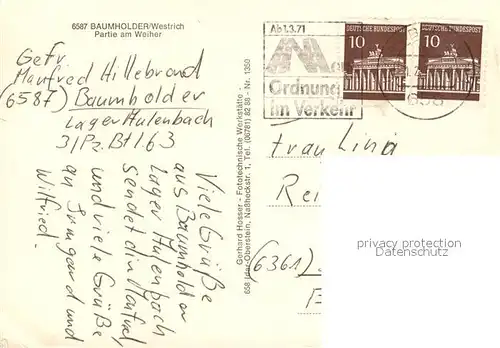 6587 BAUMHOLDER/Westrich
Partie am Weiher
Gefr.
Manfred Hillebrand
(6587) Baumholder
Lager Aulenbach
3/Pz.Btl.63
Viele Grüße
aus Baumholder
Lager Aulenbach
sendet dir Manfred,
und viele Grüße
an Irmgard und
Wilfried.
Gerhard Hosser - Fototechnische Werkstätte -
658 Idar-Oberstein, Naßheckstr. 1, Tel. (06781) 82 88 - Nr. 1350
Ab 1.3.71
Ordnung
im Verkehr
DEUTSCHE BUNDESPOST
10
DEUTSCHE BUNDESPOST
10
Frau Lina
Rei
(6361)
privacy protection
Datenschutz